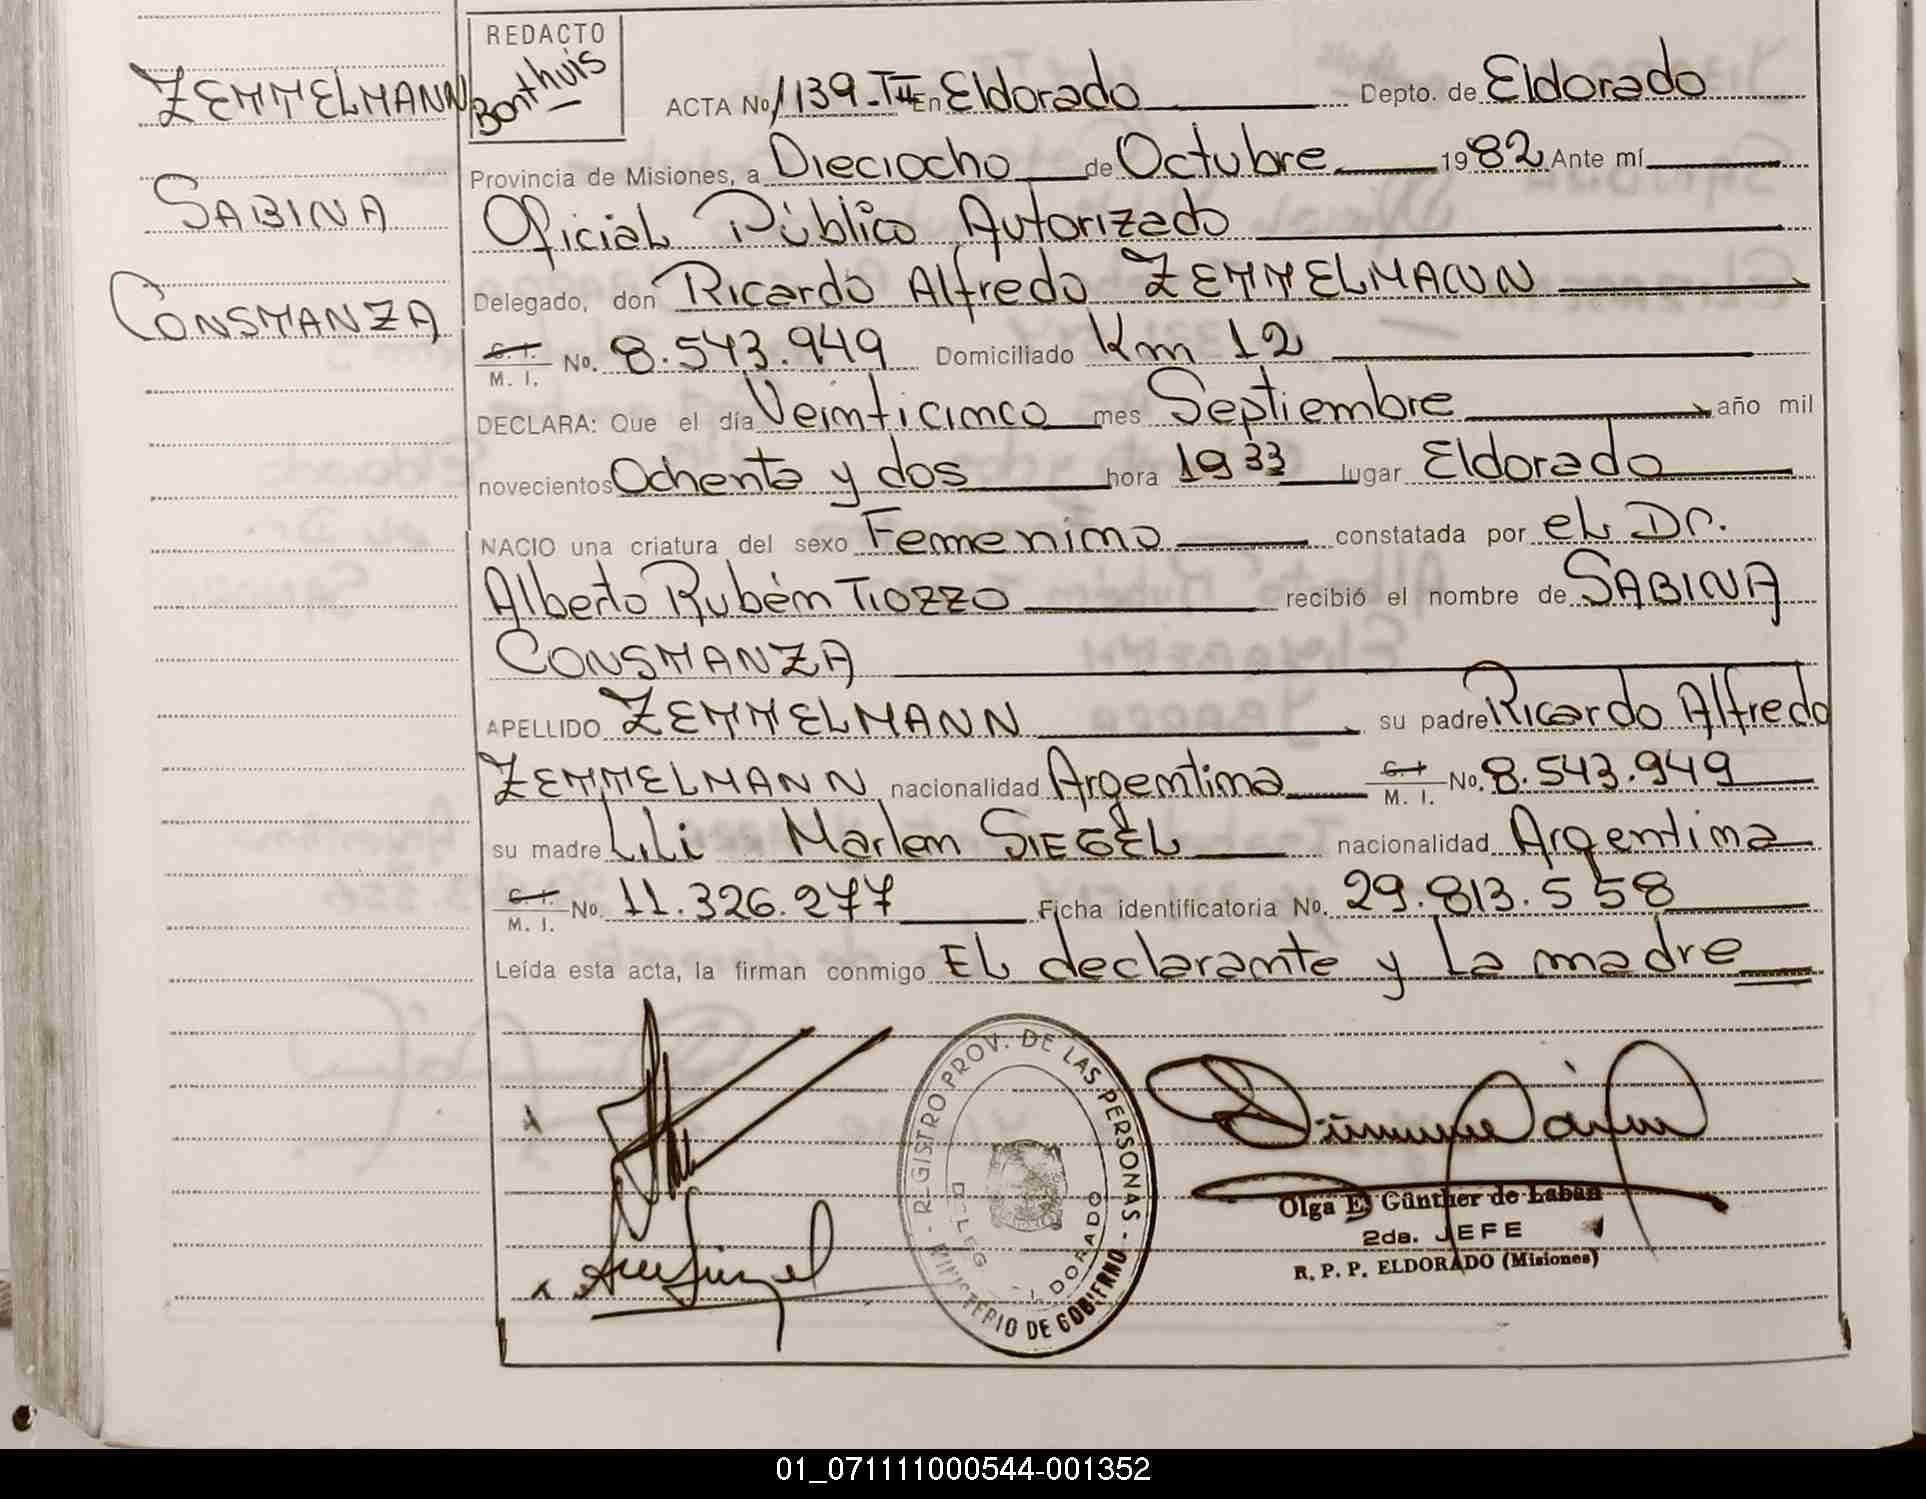 ZEMMELMANN
SABINA
CONSTANZA
REDACTO
Bonthuis
ACTA No. 1139-TII En Eldorado Depto. de Eldorado
Provincia de Misiones, a Dieciocho de Octubre 1982 Ante mí
Oficial Público Autorizado
Delegado, don Ricardo Alfredo ZEMMELMANN
C. I.
M. I. No. 8.543.949 Domiciliado Km 12
DECLARA: Que el día Veinticinco mes Septiembre año mil
novecientos Ochenta y dos hora 19 33 lugar Eldorado
NACIO una criatura del sexo Femenino constatada por el Dr.
Alberto Rubén TIOZZO recibió el nombre de SABINA
CONSTANZA
APELLIDO ZEMMELMANN su padre Ricardo Alfredo
ZEMMELMANN nacionalidad Argentina C. I. M. I. No. 8.543.949
su madre Lili Marlen SIEGEL nacionalidad Argentina
C. I.
M. I. No. 11.326.277 Ficha identificatoria No. 29.813.558
Leída esta acta, la firman conmigo El declarante y la madre
REGISTRO PROV. DE LAS PERSONAS - MINISTERIO DE GOBIERNO -
DELEG. ELDORADO
Olga E. Günther de Laban
2da. JEFE
R. P. P. ELDORADO (Misiones)
01_071111000544-001352